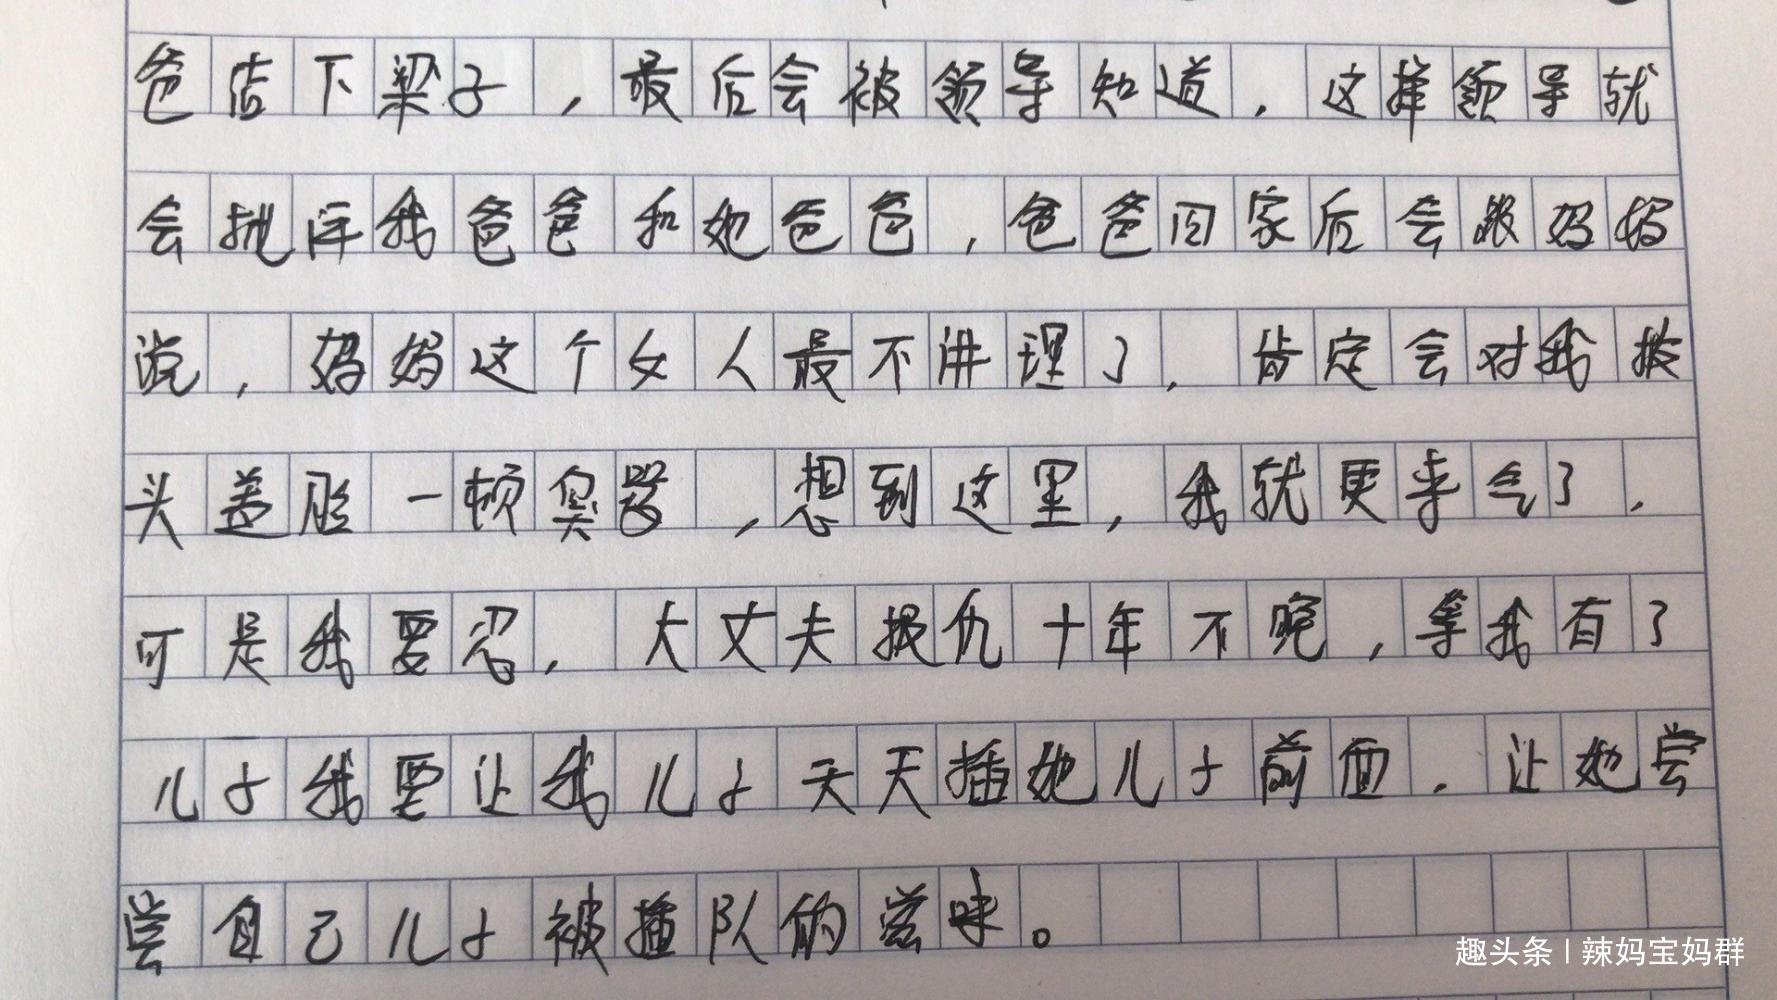 爸结下梁子，最后会被领导知道，这样领导就
会批评我爸爸和她爸爸，爸爸回家后会跟妈妈
说，妈妈这个女人最不讲理了，肯定会对我披
头盖脸一顿臭骂，想到这里，我就更来气了，
可是我要忍，大丈夫报仇十年不晚，等我有了
儿子我要让我儿子天天插她儿子前面，让她尝
尝自己儿子被插队的滋味。
趣头条 | 辣妈宝妈群